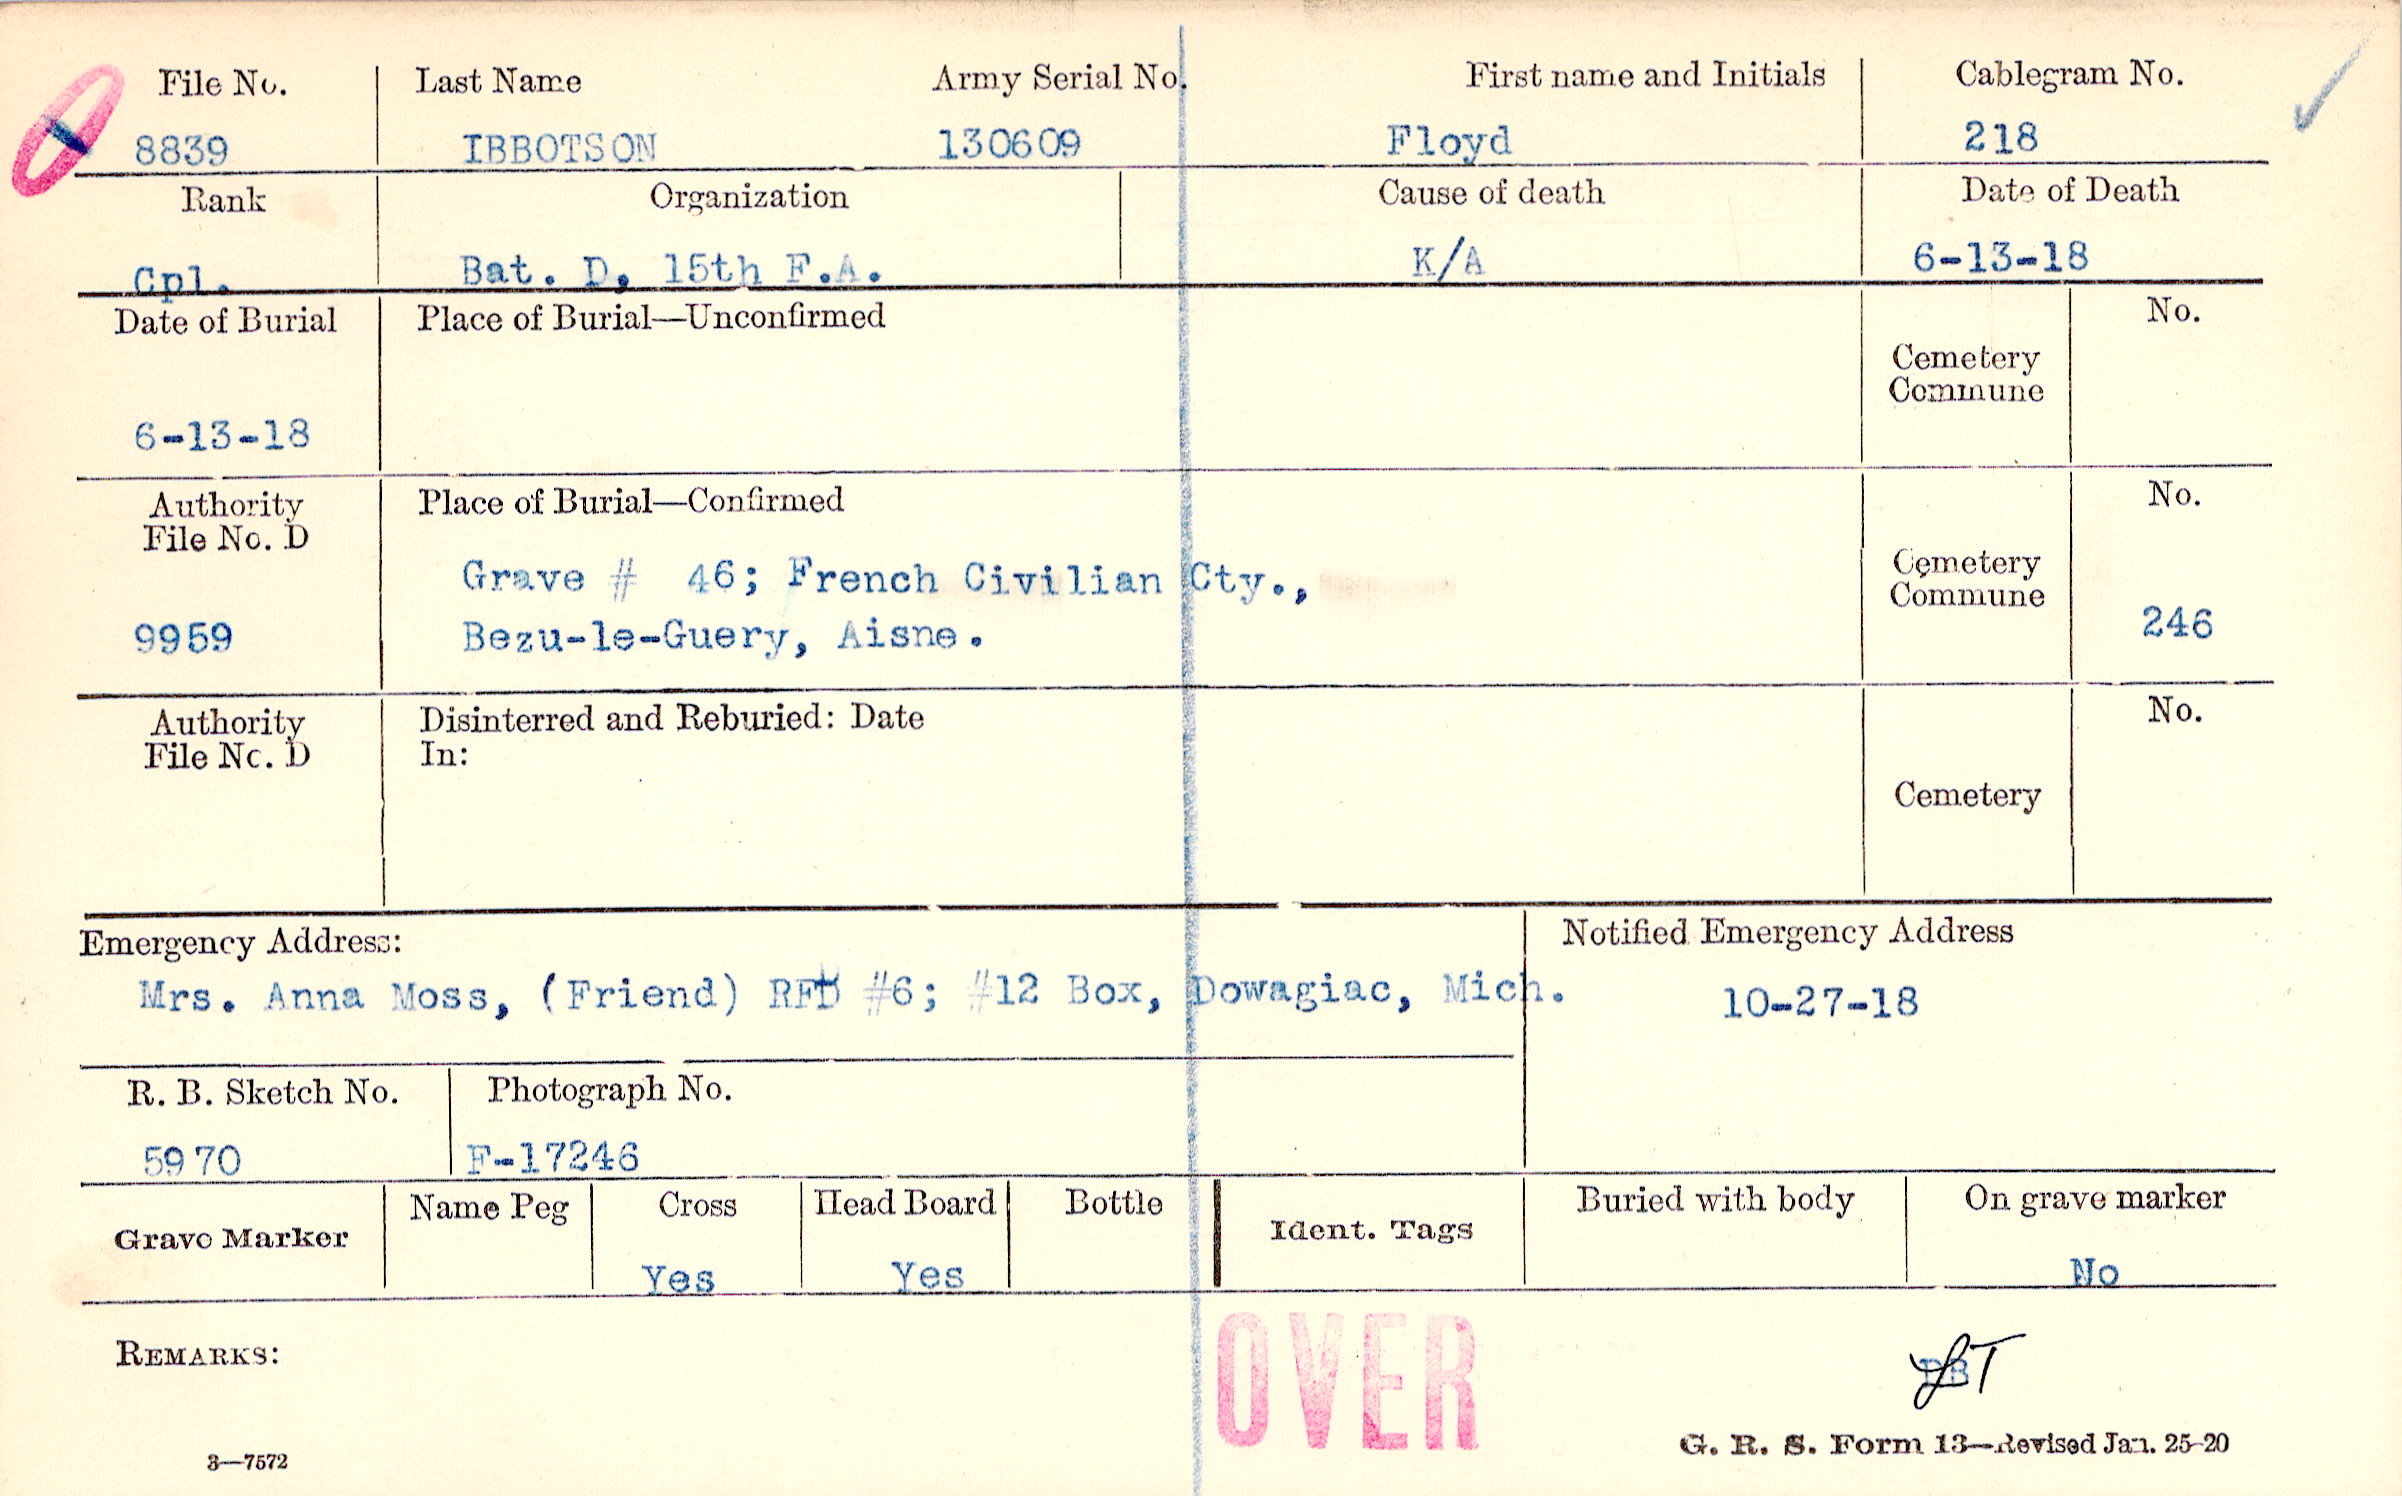 File No. Last Name Army Serial No. First name and Initials Cablegram No.
8839 IBBOTSON 130609 Floyd 218
Rank Organization Cause of death Date of Death
Cpl. Bat. D, 15th F.A. K/A 6-13-18
Date of Burial Place of Burial—Unconfirmed No.
Cemetery
Commune
6-13-18
Authority Place of Burial—Confirmed No.
File No. D
Grave # 46; French Civilian Cty., Cemetery
Commune
9959 Bezu-le-Guery, Aisne. 246
Authority Disinterred and Reburied: Date No.
File No. D In:
Cemetery
Emergency Address: Notified Emergency Address
Mrs. Anna Moss, (Friend) RFD #6; #12 Box, Dowagiac, Mich. 10-27-18
R. B. Sketch No. Photograph No.
5970 F-17246
Grave Marker Name Peg Cross Head Board Bottle Ident. Tags Buried with body On grave marker
Yes Yes No
OVER
REMARKS:
3—7572 G. R. S. Form 13—Revised Jan. 25-20